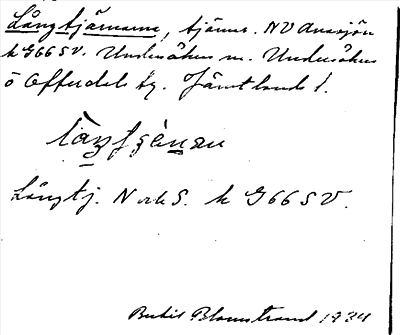 Långtjärnarne, tjärnar. NV Anasjön
k G66SV. Undersåkers sn. Undersåkers
o Offerdals tg. Jämtlands l.
Långtj. N och S. k G66SV.
Bertil Blomstrand 1934